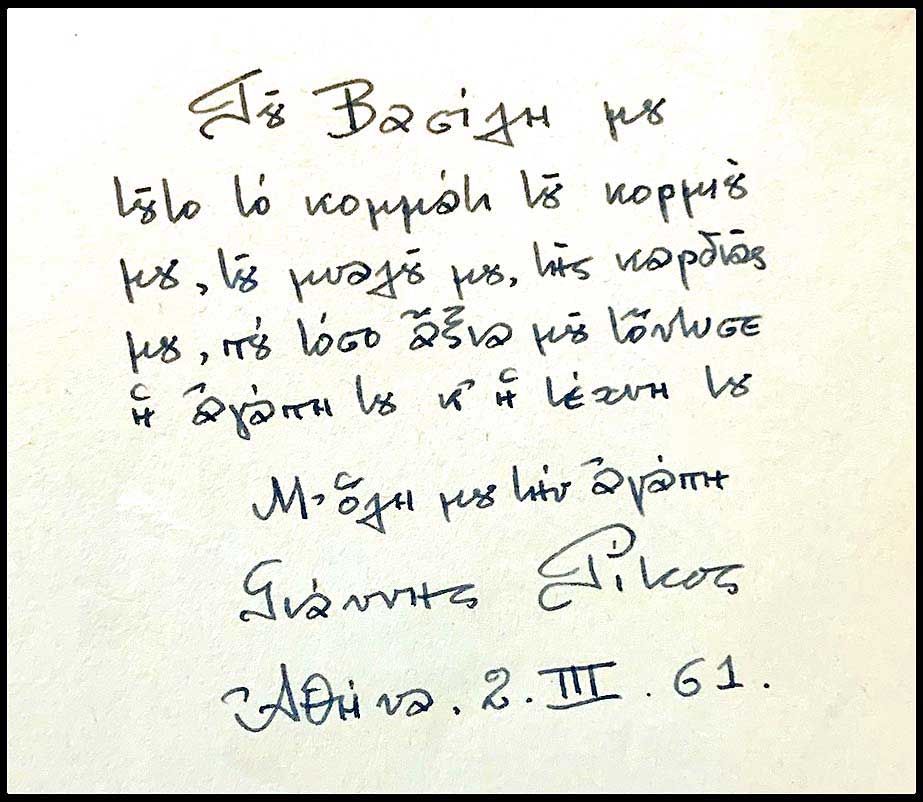 Τοῦ Βασίλη μου
τοῦτο τό κομμάτι τοῦ κορμιοῦ
μου, τοῦ μυαλοῦ μου, τῆς καρδιᾶς
μου, πού τόσο ἄξια μοῦ τὄντυσε
ἡ ἀγάπη του κ' ἡ τέχνη του
Μ' ὅλη μου τήν ἀγάπη
Γιάννης Ρίτσος
Ἀθήνα. 2. III. 61.